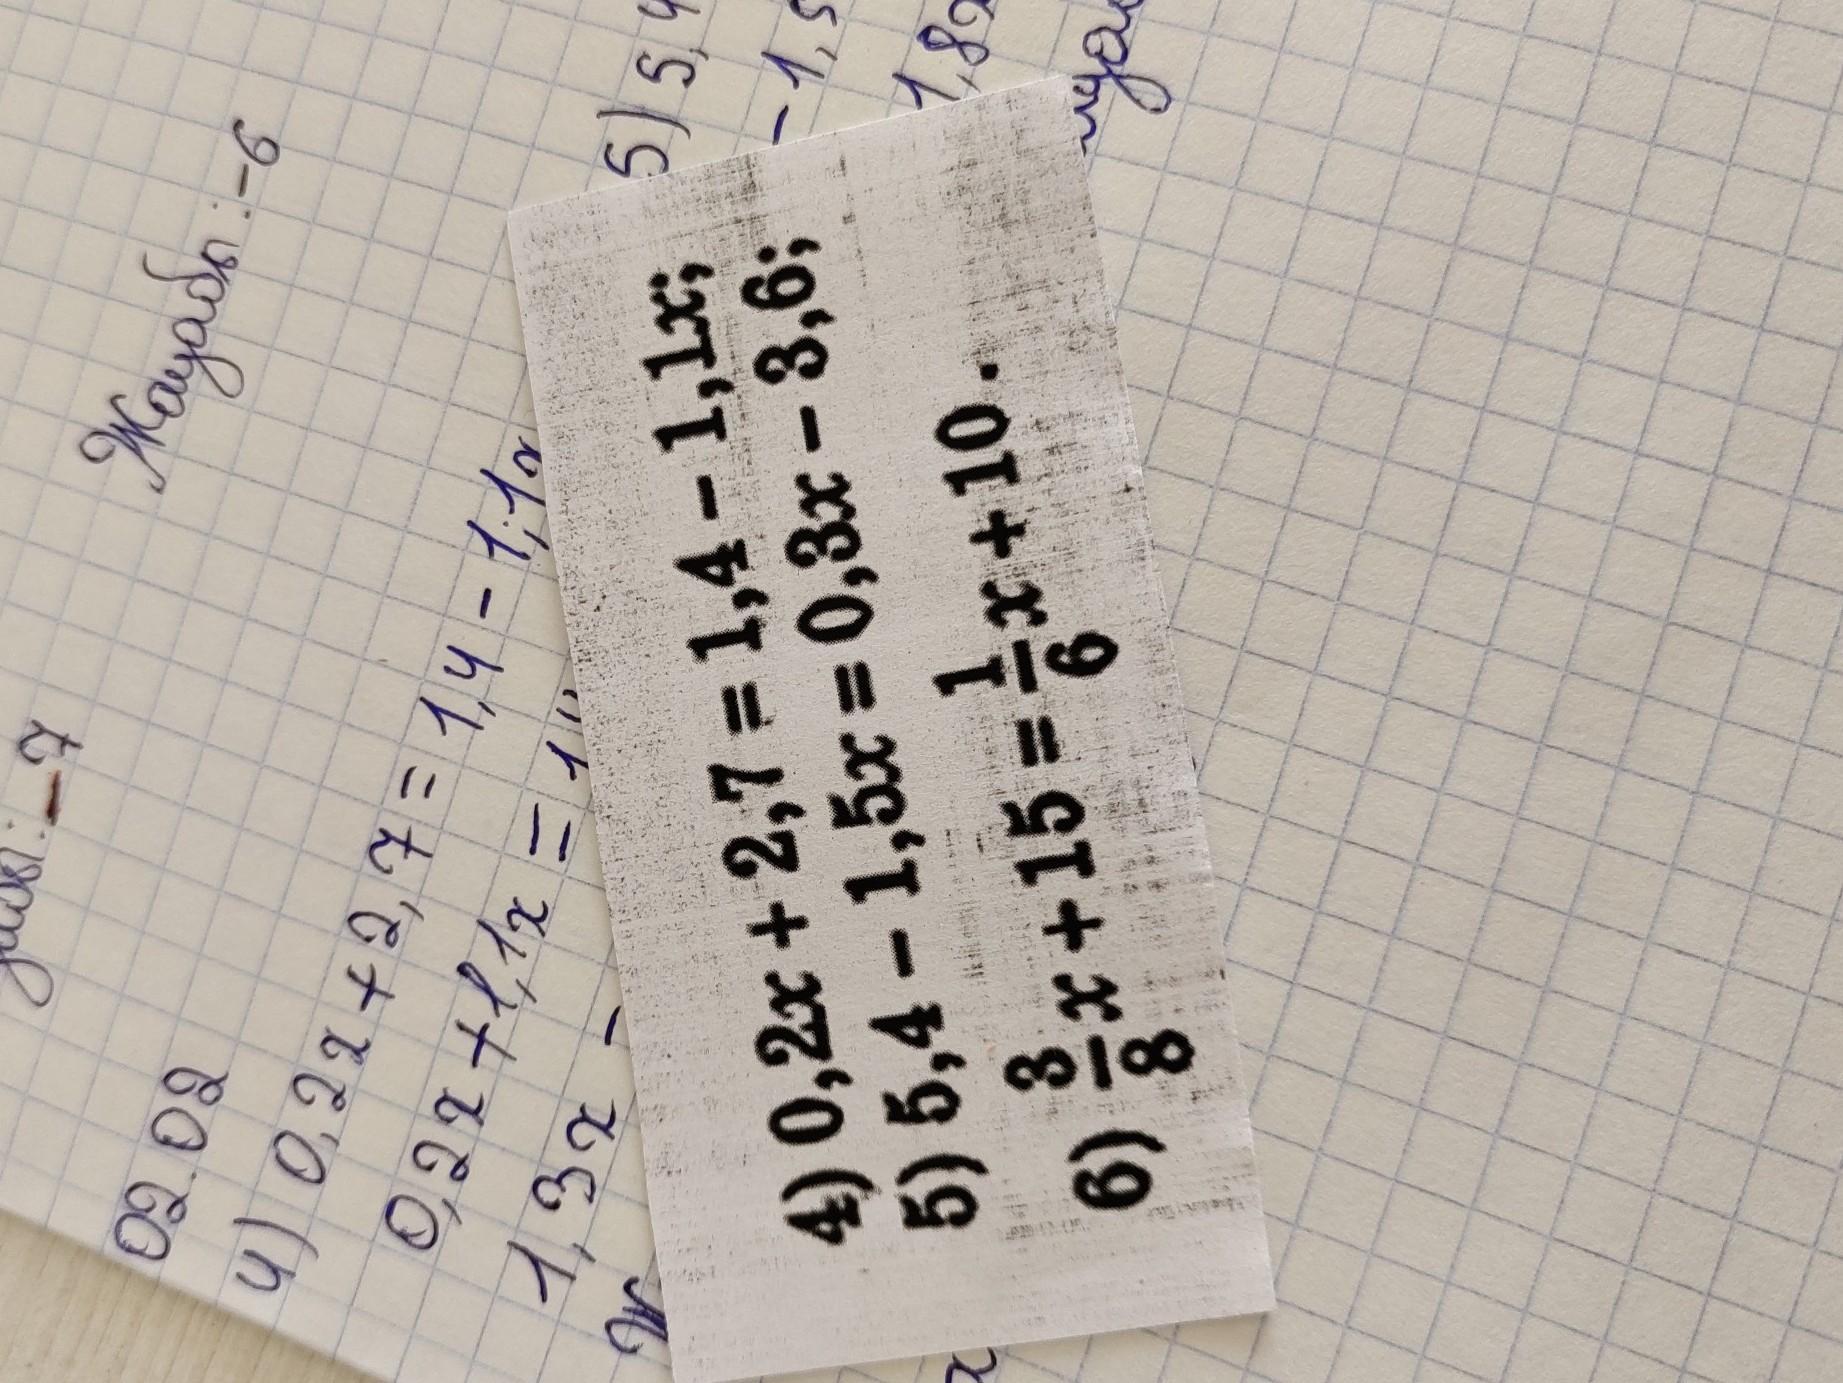 Жауабы: -6
-7
02.02
4) 0,2x + 2,7 = 1,4 - 1,1x
0,2x + 1,1x = 1
1,3x -
5) 5,4
- 1,5
1,8x
4) 0,2x + 2,7 = 1,4 - 1,1x;
5) 5,4 - 1,5x = 0,3x - 3,6;
6) 3/8 x + 15 = 1/6 x + 10.